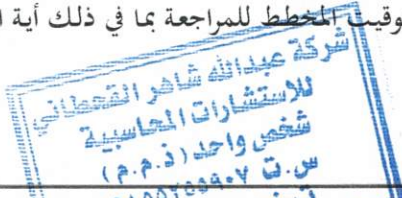 وقيت المخطط للمراجعة بما في ذلك أية ا
شركة عبدالله شاهر القحطاني
للاستشارات المحاسبية
شخص واحد (ذ.م.م)
س.ت